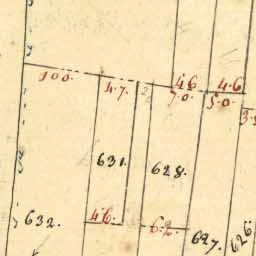 100.
4.7.
46
4.6
7.0.
5.0.
3.
631.
628.
632.
46.
6.2.
627.
626.